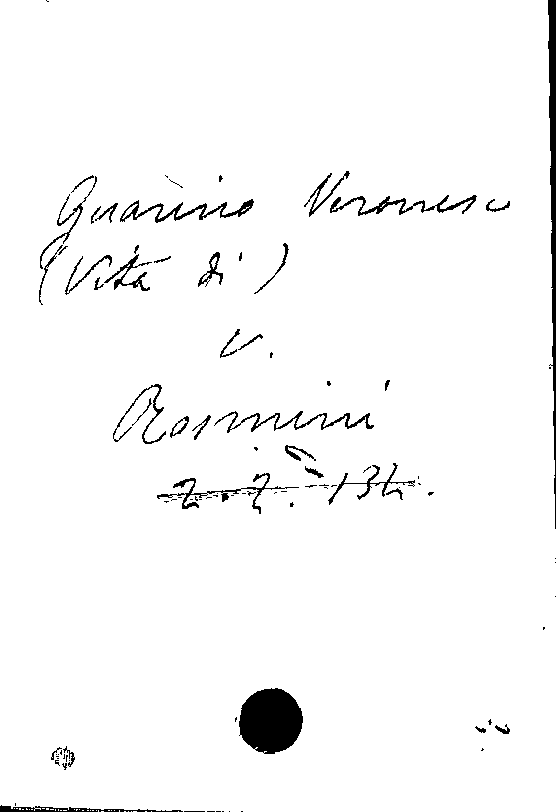 Guarino Veronese
(Vita di)
v.
Rosmini
Z. Z. 134.